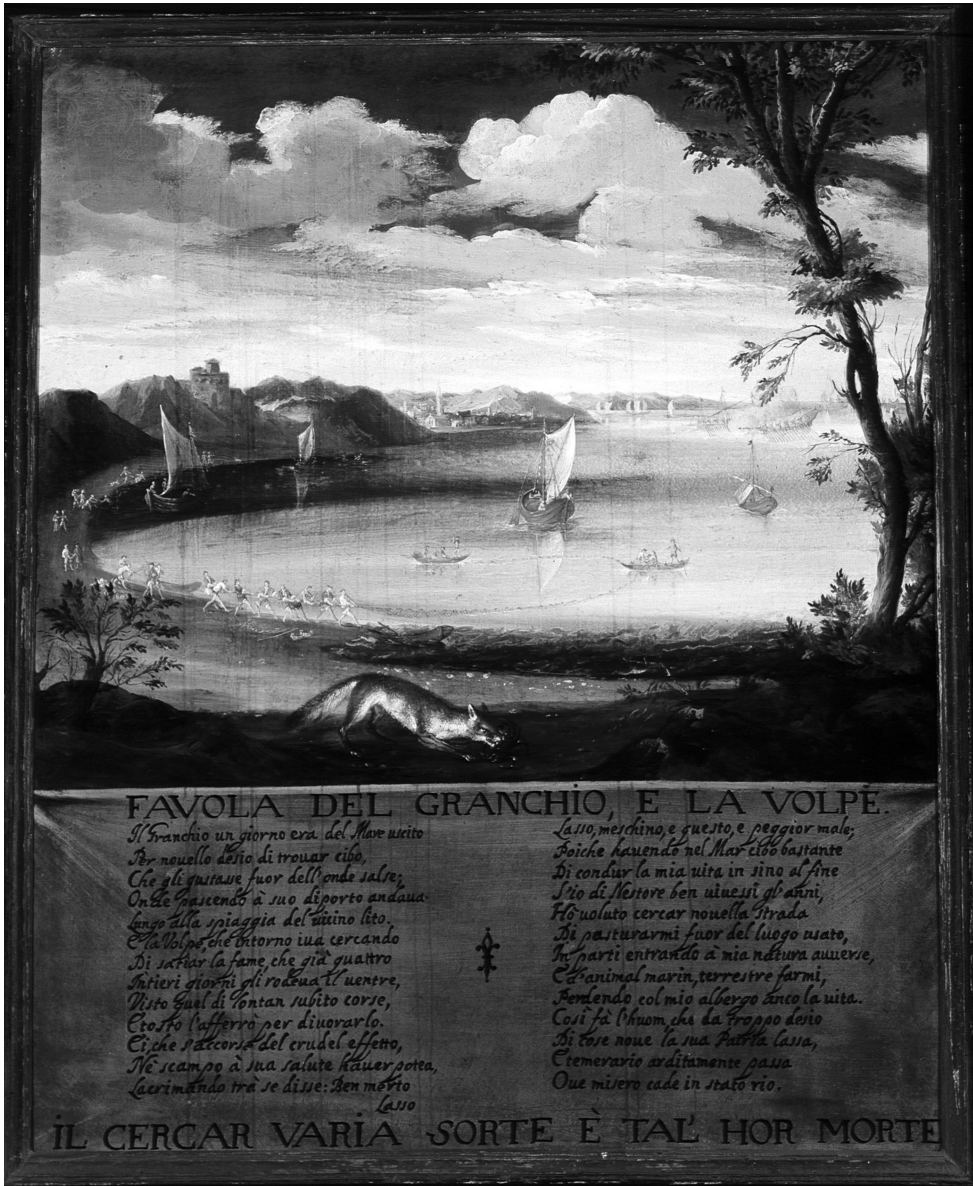 FAVOLA DEL GRANCHIO, E LA VOLPE.
Il Granchio un giorno era del Mare uscito
Per nouello desio di trouar cibo,
Che gli gustasse fuor dell'onde salse;
Onde pascendo à suo diporto andaua
Lungo alla spiaggia del uicino lito.
E la Volpe, che intorno iua cercando
Di satiar la fame, che già quattro
Intieri giorni gli rodeua il uentre,
Visto quel di lontan subito corse,
E tosto l'afferrò per diuorarlo.
Ei, che s'accorse del crudel effetto,
Nè scampo à sua salute hauer potea,
Lacrimando trà se disse: Ben merto
Lasso
Lasso, meschino, e questo, e peggior male;
Poiche hauendo nel Mar cibo bastante
Di condur la mia uita in sino al fine
S'io di Nestore ben uiuessi gl'anni,
Hò uoluto cercar nouella strada
Di pasturarmi fuor del luogo usato,
In parti entrando à mia natura auuerse,
E d'animal marin, terrestre farmi,
Perdendo col mio albergo anco la uita.
Così fà l'huom, che da troppo desio
Di cose noue la sua Patria lassa,
E temerario arditamente passa
Oue misero cade in stato rio.
IL CERCAR VARIA SORTE È TAL' HOR MORTE